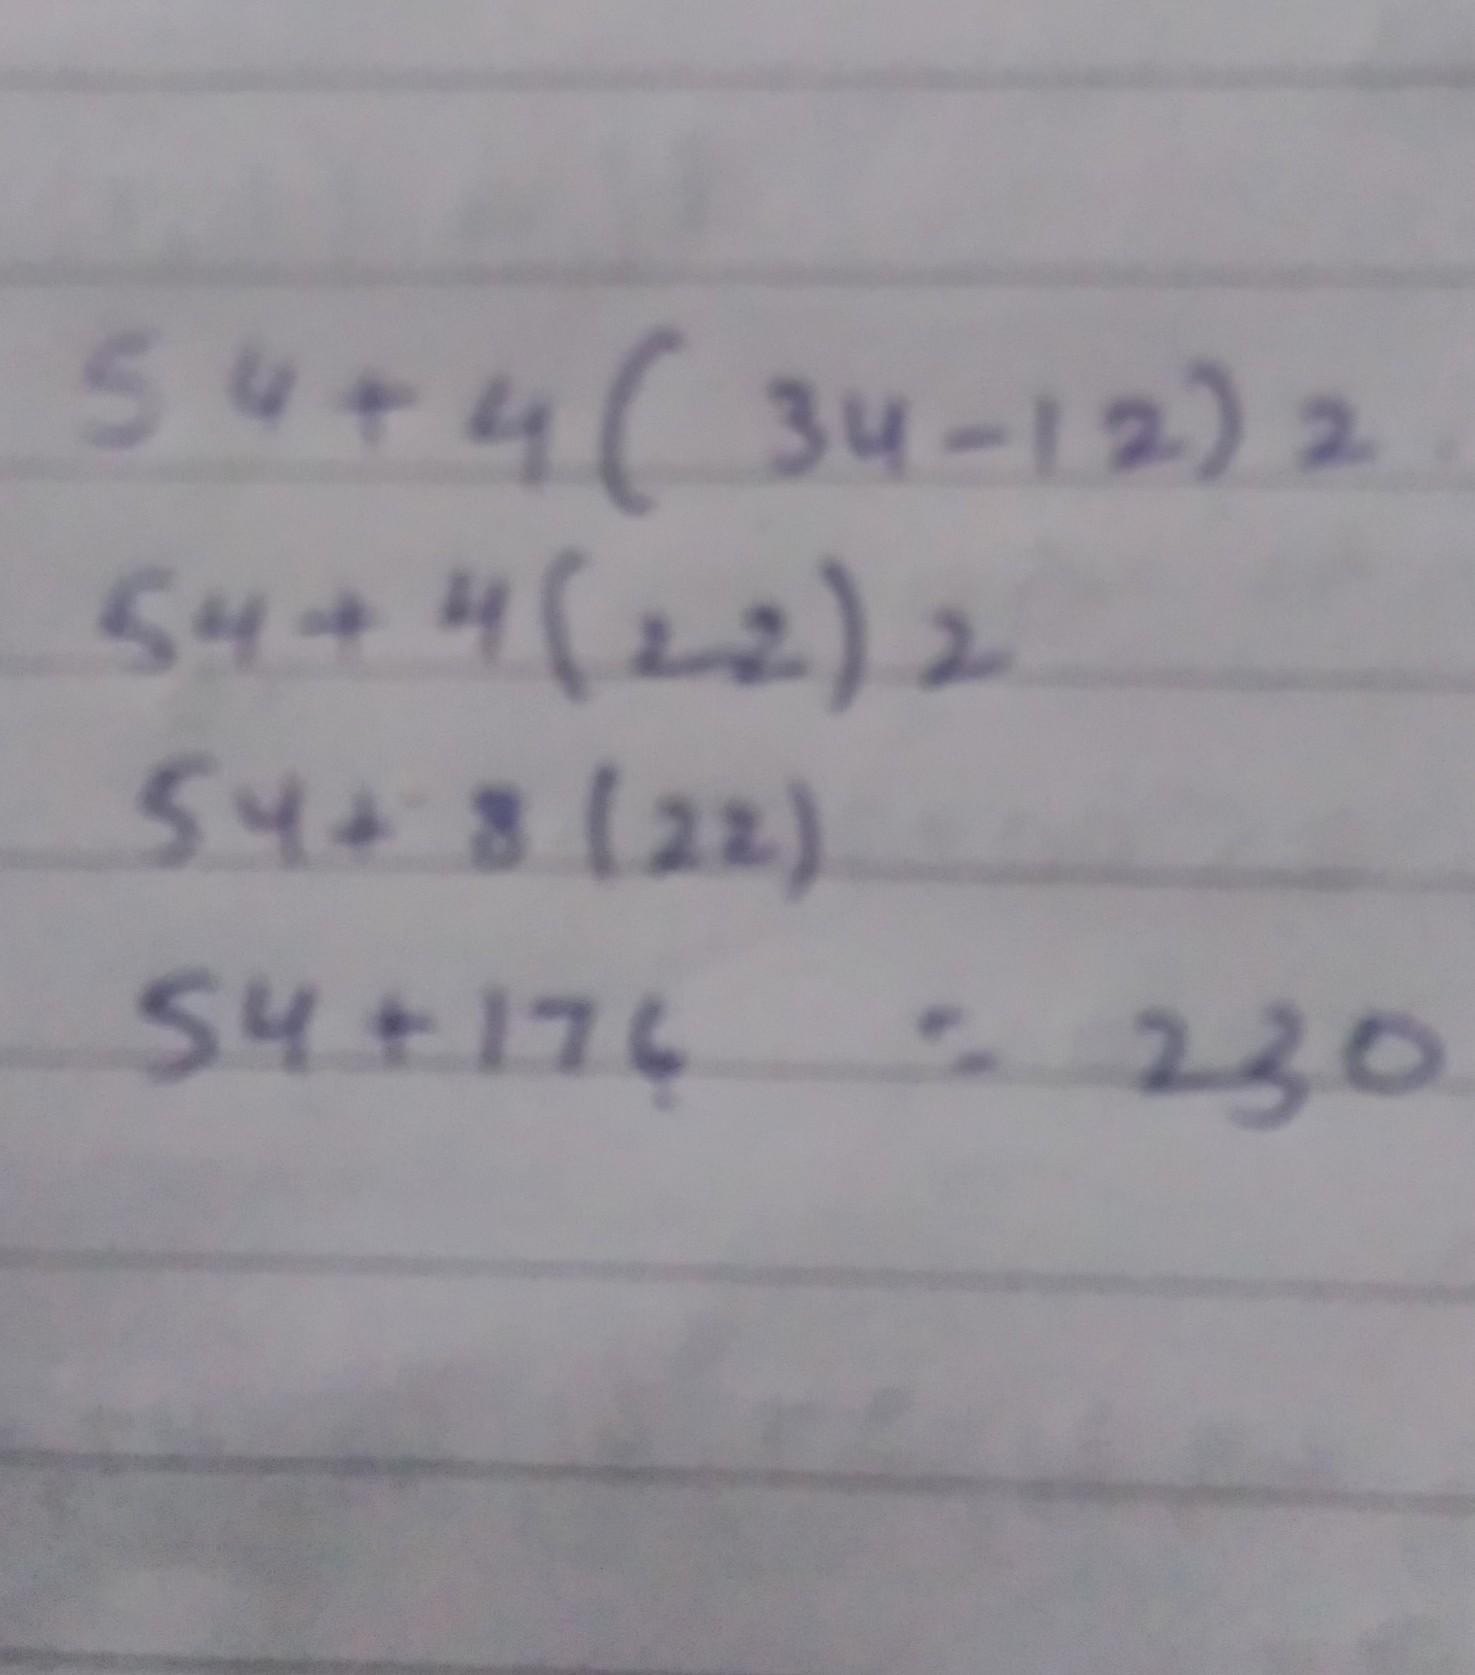 54 + 4 ( 34 - 12 ) 2
54 + 4 ( 22 ) 2
54 + 8 ( 22 )
54 + 176 = 230